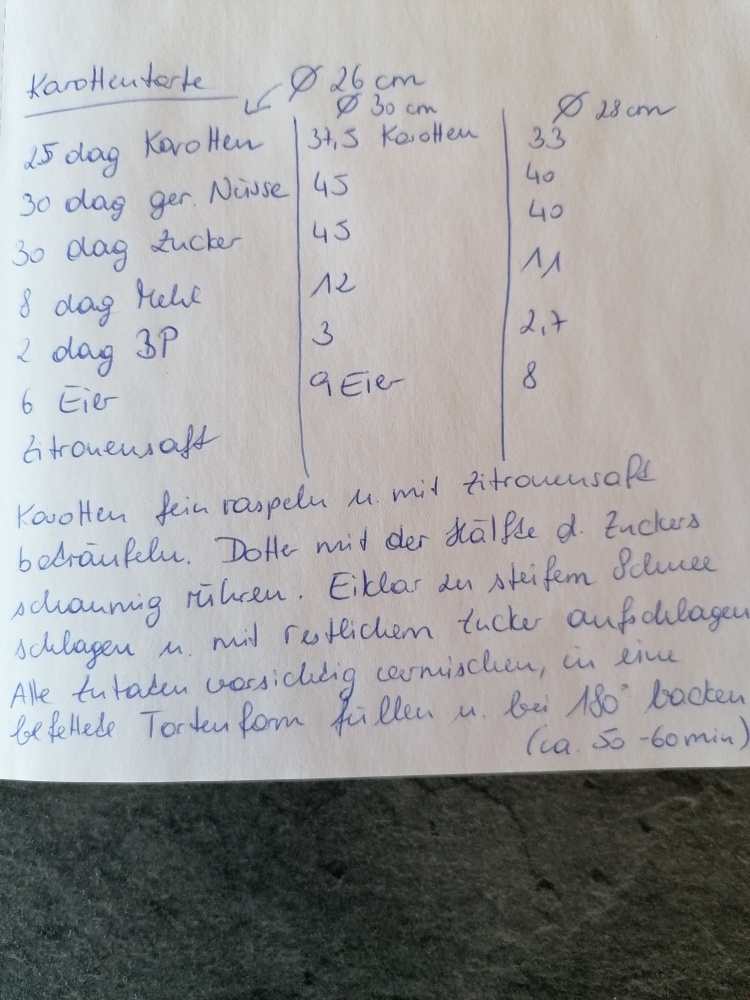 Karottentorte ↙ Ø 26 cm
Ø 30 cm Ø 28 cm
25 dag Karotten 37,5 Karotten 33
30 dag ger. Nüsse 45 40
30 dag Zucker 45 40
8 dag Mehl 12 11
2 dag BP 3 2,7
6 Eier 9 Eier 8
Zitronensaft
Karotten fein raspeln u. mit Zitronensaft
beträufeln. Dotter mit der Hälfte d. Zuckers
schaumig rühren. Eiklar zu steifem Schnee
schlagen u. mit restlichem Zucker aufschlagen
Alle Zutaten vorsichtig vermischen, in eine
befettete Tortenform füllen u. bei 180° backen
(ca. 50-60min)